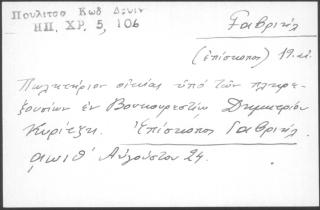 Πουλίτσα Κωδ Δενιν
ΗΠ. ΧΡ. 5, 106
Γαβριήλ
(ἐπίσκοπος) 19. αἰ.
Πωλητήριον οἰκίας ὑπὸ τῶν πληρε-
ξουσίων ἐν Βουκουρεστίῳ Δημητρίου
Κυρίτζη. Ἐπίσκοπος Γαβριήλ.
αωιθʹ Αὐγούστου 24.